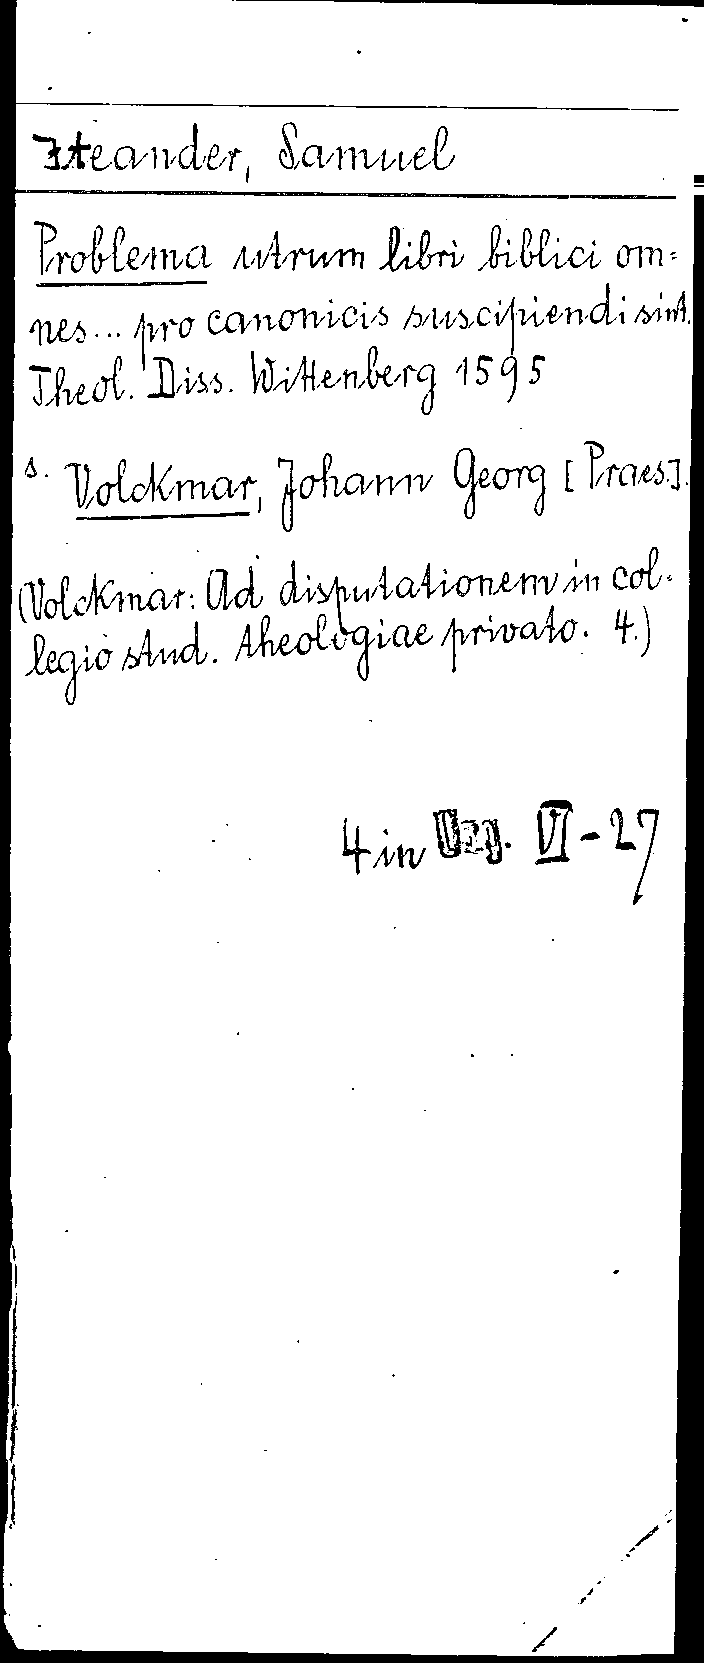 Iteander, Samuel
Problema utrum libri biblici om=
nes... pro canonicis suscipiendi sint.
Theol. Diss. Wittenberg 1595
s. Volckmar, Johann Georg [Praes.].
(Volckmar: Ad disputationem in col=
legio stud. theologiae privato. 4.)
4 in VI-27